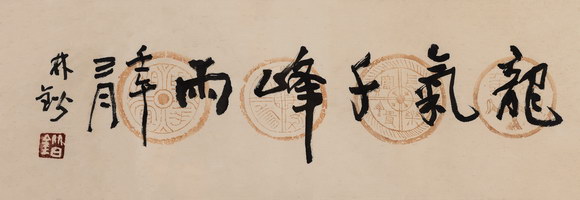 龍氣千峰雨
壬午
三月
林鍇